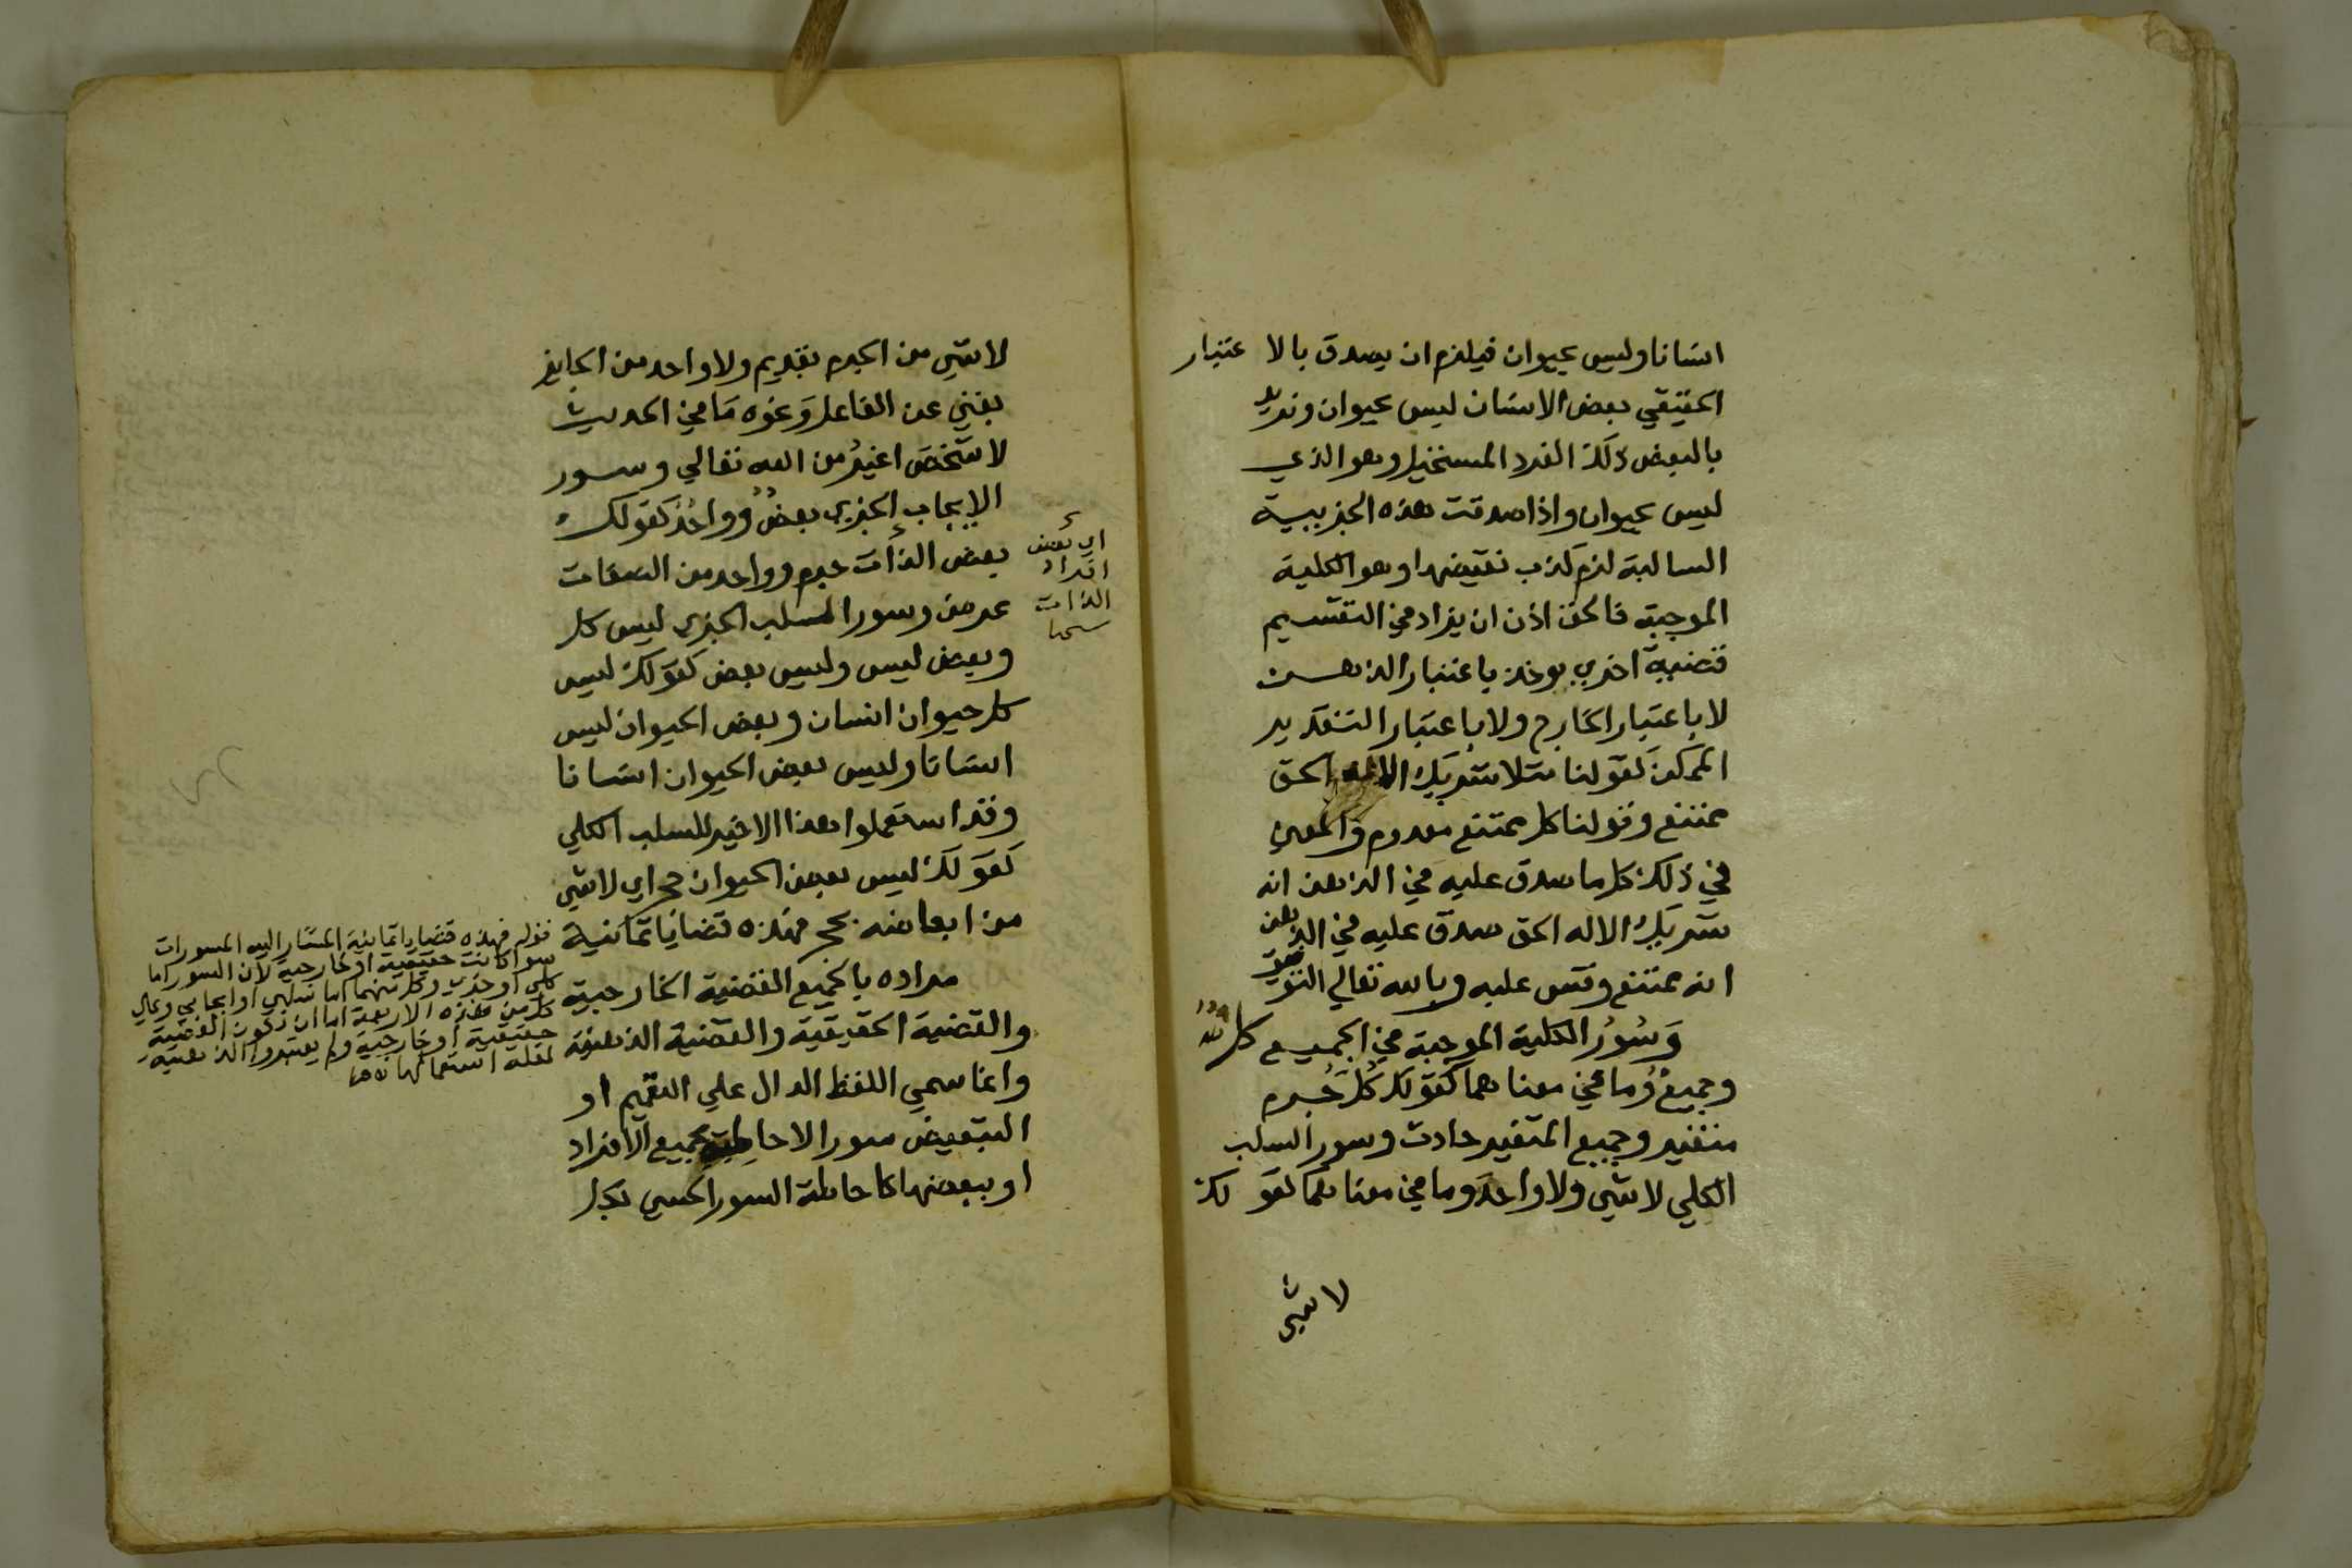 انسانا وليس بحيوان فيلزم ان يصدق بالا عتبار
الحقيقي بعض الانسان ليس بحيوان ونريد
بالبعض ذلك الفرد المستحيل وهو الذي
ليس بحيوان واذا صدقت هذه الجزييية
السالبة لزم كذب نقيضها وهو الكلية
الموجبة فالحق اذن ان يزاد في التقسيم
قضية اخري يوخذ باعتبار الذهن
لا باعتبار الخارج ولا باعتبار التقدير
الممكن كقولنا مثلا شريك الاله الحق
ممتنع وقولنا كل ممتنع معدوم والمعني
في ذلك كل ما صدق عليه في الذهن انه
شريك الاله الحق صدق عليه في الذهن
انه ممتنع وقس عليه وبالله تعالي التوفيق
وَسُورُ الكلية الموجبة في الجميع كل
وجميعٌ وُما في معناهما كقولك كُلّ جُرم
متغير وجميع المتغير حادث وسور السلب
الكلي لا شي ولا واحدَ وما في معناهما كقو لك
لا شي
لا شي من الجرم بقديم ولا واحد من الجايز
بغني عن الفاعل وَنحوه مَا في الحديث
لا شَخصَ اغيرُ من الله تعالي وسور
الايجاب الجزءي بعضٌ وواحدٌ كقولك
بعض الذات جرم وواحد من الصفات
عرض وسور السلب الجزءي ليس كل
وبعض ليس وليس بعض كقولك ليس
كل حيوان انسان وبعض الحيوان ليس
انسانا وليس بعض الحيوان انسانا
وقد استعملوا هذا الاخير للسلب الكلي
كقولك ليس بعض الحيوان حجر اي لا شي
من ابعاضه بحجر فهذه قضايا ثمانية
مراده بالجميع القضية الخارجية
والقضية الحقيقية والقضية الذهنية
وانما سمي اللفظ الدال علي التعميم او
التبعيض سورا لاحاطته بجميع الافراد
او ببعضها كاحاطة السور الحسي بكل
اي بعض
افراد
الذات
قوله فهذه قضايا ثمانية المشار اليه المسورات
سوا كانت حقيقية او خارجية لان السور اما
كلي او جزءي وكل منهما اما سلبي او ايجابي وعلي
كل من هذه الاربعة اما ان تكون القضية
حقيقية او خارجية ولم يعتبروا الذهنية
لقلة استعمالها